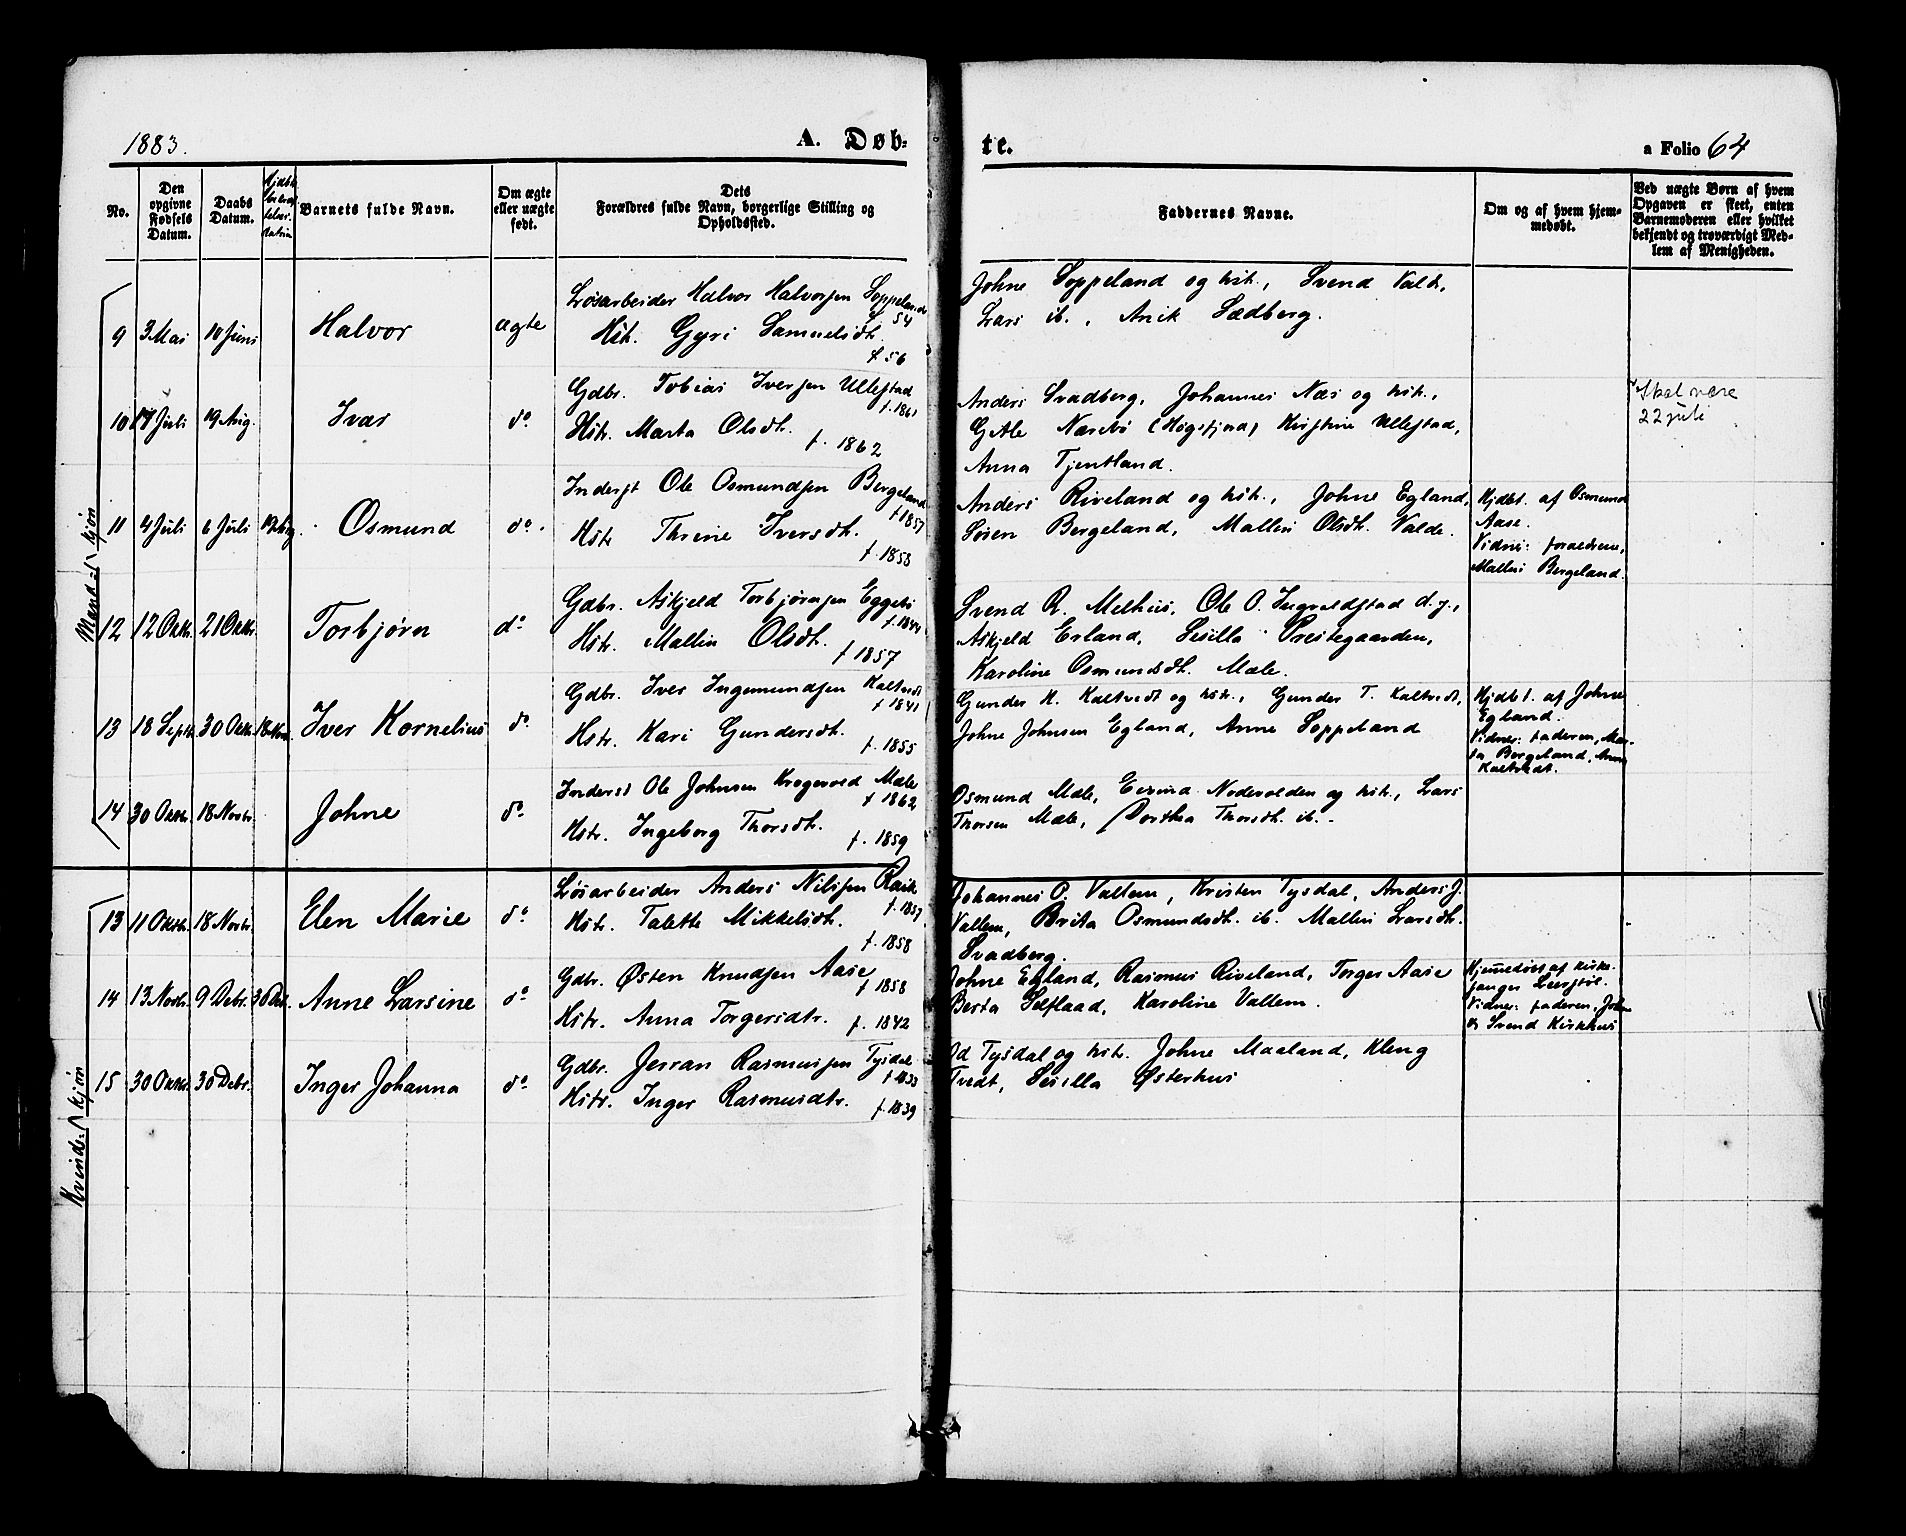 1883.
A. Døb-
te.
a Folio 64
No.
Den opgivne Fødsels Datum.
Daabs Datum.
Barnets fulde Navn.
Om ægte eller uægte født.
Dets Forældres fulde Navn, borgerlige Stilling og Opholdssted.
Faddernes Navne.
Om og af hvem hjemmedøbt.
Ved uægte Børn af hvem Opgaven er skeet, enten Barnemoderen eller hvilket bekjendt og troværdigt Medlem af Menigheden.
Mand-kjøn
9 3 Mai 10 Juni Halvor ægte
Løsarbeider Halvor Halvorsen Soppeland
f. 54
Hst. Gyri Samuelsdt.
f. 56
Johne Soppeland og hst., Svend Valh,
Lars ib., Anik Sædberg.
10 17 Juli 19 Aug. Ivar do
Gdbr. Tobias Iversen Ullestad
f. 1861
Hstr. Marta Olsdt.
f. 1862
Anders Svadberg, Johannes Næs og hst.,
Gitle Nærebø (Høgsfjord) Kirstine Ullestad,
Anna Tjentland.
Skal være
22 juli
11 4 Juli 6 Juli Osmund do.
Inderst Ole Osmundsen Bergeland
f. 1857
Hstr Thrine Iversdt.
f. 1853
Anders Riveland og hst., Johne Egland,
Søren Bergeland, Malleni Olsdt. Valde.
Hjdbt. af Osmund
Aase.
Vidner: foraldrene,
Malleni Bergeland.
12 12 Oktr. 21 Oktr. Torbjørn do
Gdbr. Askjeld Torbjørnsen Eggebø
f. 1844
Hstr. Mallin Olsdt.
f. 1857
Svend R. Melhus, Ole O. Ingvaldstad d.y.,
Askjeld Erland, Sesilla Prestegaarden,
Karoline Osmundsdt. Mæle.
13 18 Septr. 30 Oktr. 18 Novr. Iver Kornelius do
Gdbr. Iver Ingemundsen Kaltvedt
f. 1841
Hstr. Kari Gundersdt.
f. 1855
Gunder K. Kaltvedt og hst., Gunder T. Kaltvedt,
Johne Johnsen Egland, Anne Soppeland
Hjdbt. af Johne
Egland.
Vidner: faderen, Mar-
ta Bergeland, Anna
Kaltvedt.
14 30 Oktr. 18 Novbr. Johne do
Inderst Ole Johnsen Krogevold Mæle
f. 1862
Hstr. Ingeborg Thorsdt.
f. 1859
Osmund Mæle, Eivind Nodevolden og hst., Lars
Thorsen Mæle, Portha Thorsdt. ib.
Kvinde-kjøn
13 11 Oktbr. 18 Novbr. Elen Marie do
Løsarbeider Anders Nilsen Rask
f. 1857
Hstr. Talette Mikkelsdt.
f. 1858
Johannes O. Vallem, Kristen Tysdal, Anders J.
Vallem, Brita Osmundsdt. ib. Malleni Larsdt.
Svadberg.
14 13 Novbr. 9 Debr. 30 Deb. Anne Larsine do
Gdbr. Østen Knudsen Aase
f. 1858
Hstr. Anna Torgersdtr.
f. 1842
Johne Egland, Rasmus Riveland, Torger Aase
Berta Selflaad, Karoline Vallem.
Hjemmedøbt af Kirke-
sanger
Vidner: faderen, John
og Svend Kirkhus
15 30 Oktbr. 30 Debr. Inger Johanna do
Gdbr. Jerran Rasmussen Tysdal
f. 1833
Hstr. Inger Rasmusdtr.
f. 1839
Od Tysdal og hst. Johne Maaland, Kleng
Tvedt, Sesilla Østerhus